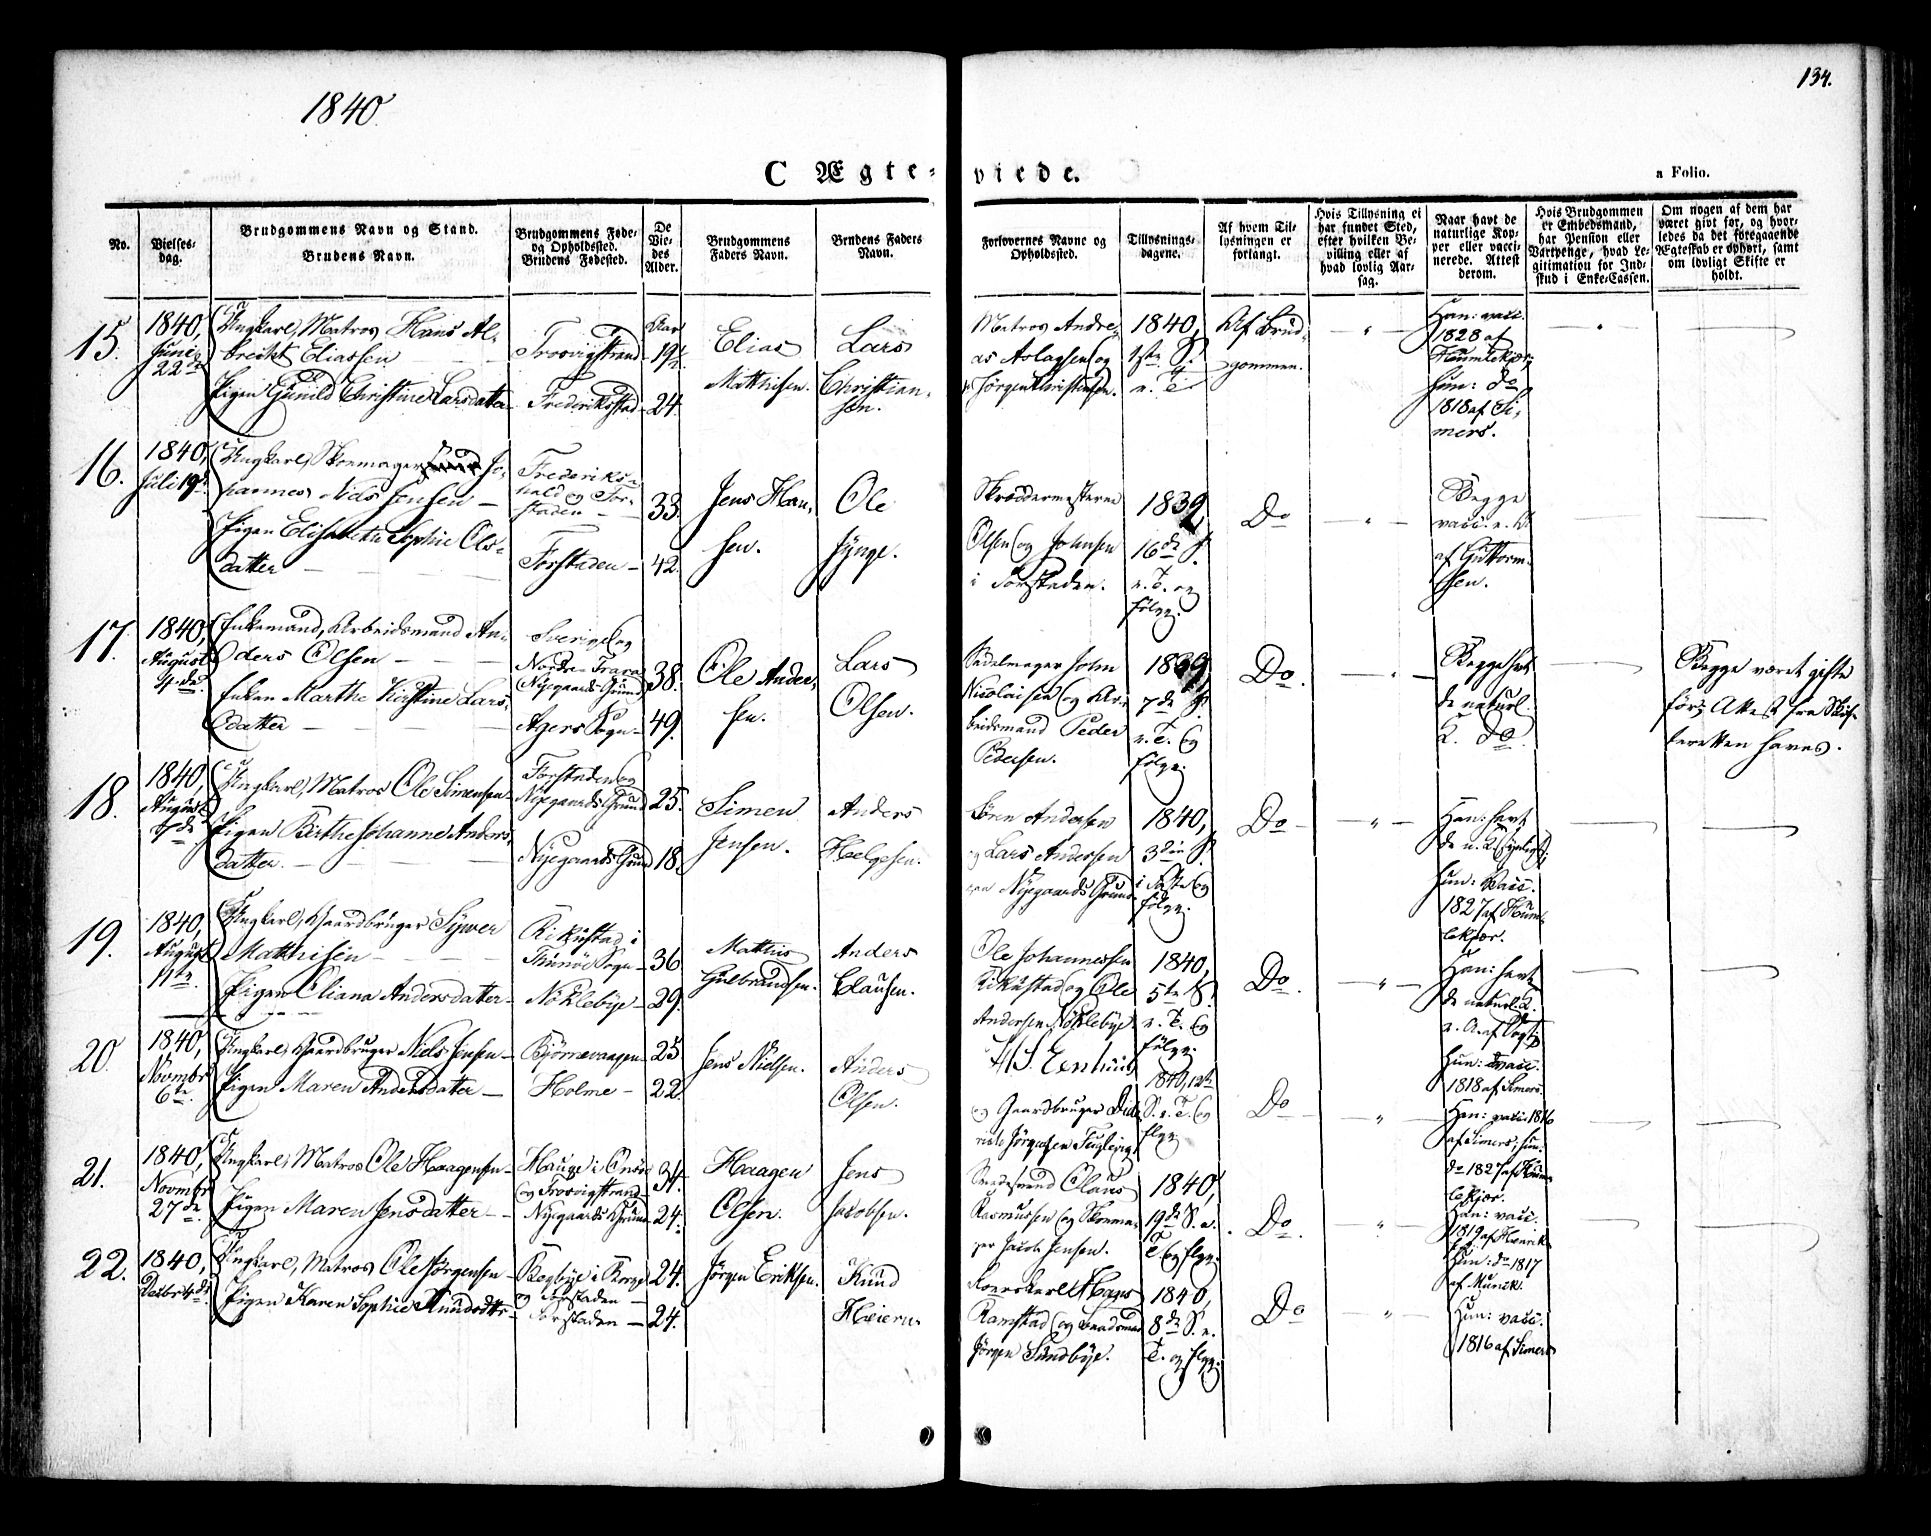 1840.
134.
C Ægte-
viede.
a Folio.
No.
Vielses-
dag.
Brudgommens Navn og Stand.
Brudens Navn.
Brudgommens Føde-
og Opholdssted.
Brudens Fødested.
De
Vie-
des
Alder.
Brudgommens
Faders Navn.
Brudens Faders
Navn.
Forlovernes Navne og
Opholdssted.
Tillysnings-
dagene.
Af hvem Til-
lysningen er
forlangt.
Hvis Tillysning ei
har fundet Sted,
efter hvilken Be-
villing eller af
hvad lovlig Aar-
sag.
Naar havt de
naturlige Kop-
per eller vacci-
nerede. Attest
derom.
Hvis Brudgommen
er Embedsmand,
har Pension eller
Vartpenge, hvad Le-
gitimation for Ind-
skud i Enke-Cassen.
Om nogen af dem har
været givt før, og hvor-
ledes da det foregaaende
Ægteskab er ophørt, samt
om lovligt Skifte er
holdt.
15.
1840,
Juni
22de
Ungkarl, Matros Hans Al-
brecht Eliassen
Pigen Gunild Christine Larsdatter
Trosvigstrand
Frederiksstad
Aar
19½
24.
Elias
Matthisen.
Lars
Christian-
sen.
Matros Andre-
as Aslagsen og
Jørgen Christensen.
1840,
1ste S.
e. T.
Af Brud-
gommen.
Han: vacc.
1828 af
Humlekjær,
Hun: do
1818 af Si-
mers.
16.
1840,
Juli 19de
Ungkarl, Skomager Jo-
hannes Nils Jensen
Pigen Elisabeth Sophie Ols-
datter
Frederiks-
hald og For-
staden
Forstaden
33.
42.
Jens Han-
sen.
Ole
Jynge.
Skræddermesterne
Olsen og Johnsen
i Forstaden.
1839,
16de S.
e. T. og
følg.
Do
Begge
vacc. e. A.
af Guttorm-
sen.
17.
1840,
August
4de
Enkemand, Arbeidsmand An-
ders Olsen
Enken Marthe Kirstine Lars-
datter
Sverige og
Nordre Trara
Nyegaards Grund
Agers Sogn
38.
49.
Ole Ander-
sen.
Lars
Olsen.
Sadelmager John
Nicolaisen og Ar-
beidsmand Peder
Pedersen.
1839,
7de S.
e. T. og
følg.
Do.
Begge havt
de naturl.
K. do.
Begge været gifte
før; Attest fra Skif-
teretten haves.
18.
1840,
August
7de
Ungkarl, Matros Ole Simensen
Pigen Birthe Johanne Anders-
datter
Forstaden og
Nyegaards Grund
Nyegaards Grund
25.
18.
Simen
Jensen.
Anders
Helgesen.
Søren Andersen
og Lars Andersen
Nyegaards Grund
1840,
3die S.
i Faste og
følg.
Do
Han: havt
de n. K.
Hun: Vacc.
1827 af Hum-
lekjær.
19.
1840,
August
11te
Ungkarl, Gaardbruger Syver
Matthisen
Pigen Eliana Andersdatter
Rikustad i
Thunöe Sogn
Nöklebye
36.
29.
Matthis
Gulbrandsen.
Anders
Clausen.
Ole Johannessen
Rikustad og Ole
Andersen Nöklebye
1840,
5te S.
e. T. og
følg.
Do.
Han: havt
de naturl. K.
e. A. af Vogt
Hun: vacc.
1818 af Simers
20.
1840,
Novmbr
6te
Ungkarl, Gaardbruger Niels Jensen
Pigen Maren Andersdatter
Bjørnevaagen
Holme
25.
22.
Jens Nielsen.
Anders
Olsen.
og Gaardbruger Did-
rik Jørgensen Fuglevig
1840, 12te
S. e. T. og
flg.
Do
Han: vacc. 1816
af Simers, Hun:
do 1827 af Hum-
lekjær.
21.
1840,
Novmbr
27de
Ungkarl, Matros Ole Haagensen
Pigen Maren Jensdatter
Hauge i Onsø
og Trosvigstrand
Nyegaards Grund
34.
24.
Haagen
Olsen.
Jens
Jacobsen.
Claus
Rasmussen og Skoma-
ger Jacob Jensen.
1840,
19de S. e.
T. og flg.
Do.
Han: vacc.
1819 af Henrik-
Hun: do 1817
af Munck.
22.
1840,
Decbr 4de
Ungkarl, Matros Ole Jørgensen
Pigen Karen Sophie Knudsdtr
Begbye i Borge
og Forstaden
Forstaden
24.
24.
Jørgen Eriksen.
Knud
Heiern.
Roerskarl Hans
Ramstad og
Jörgen Sundbye.
1840,
8de S. e.
T. og flg.
Do
Hun: vacc.
1816 af Simers